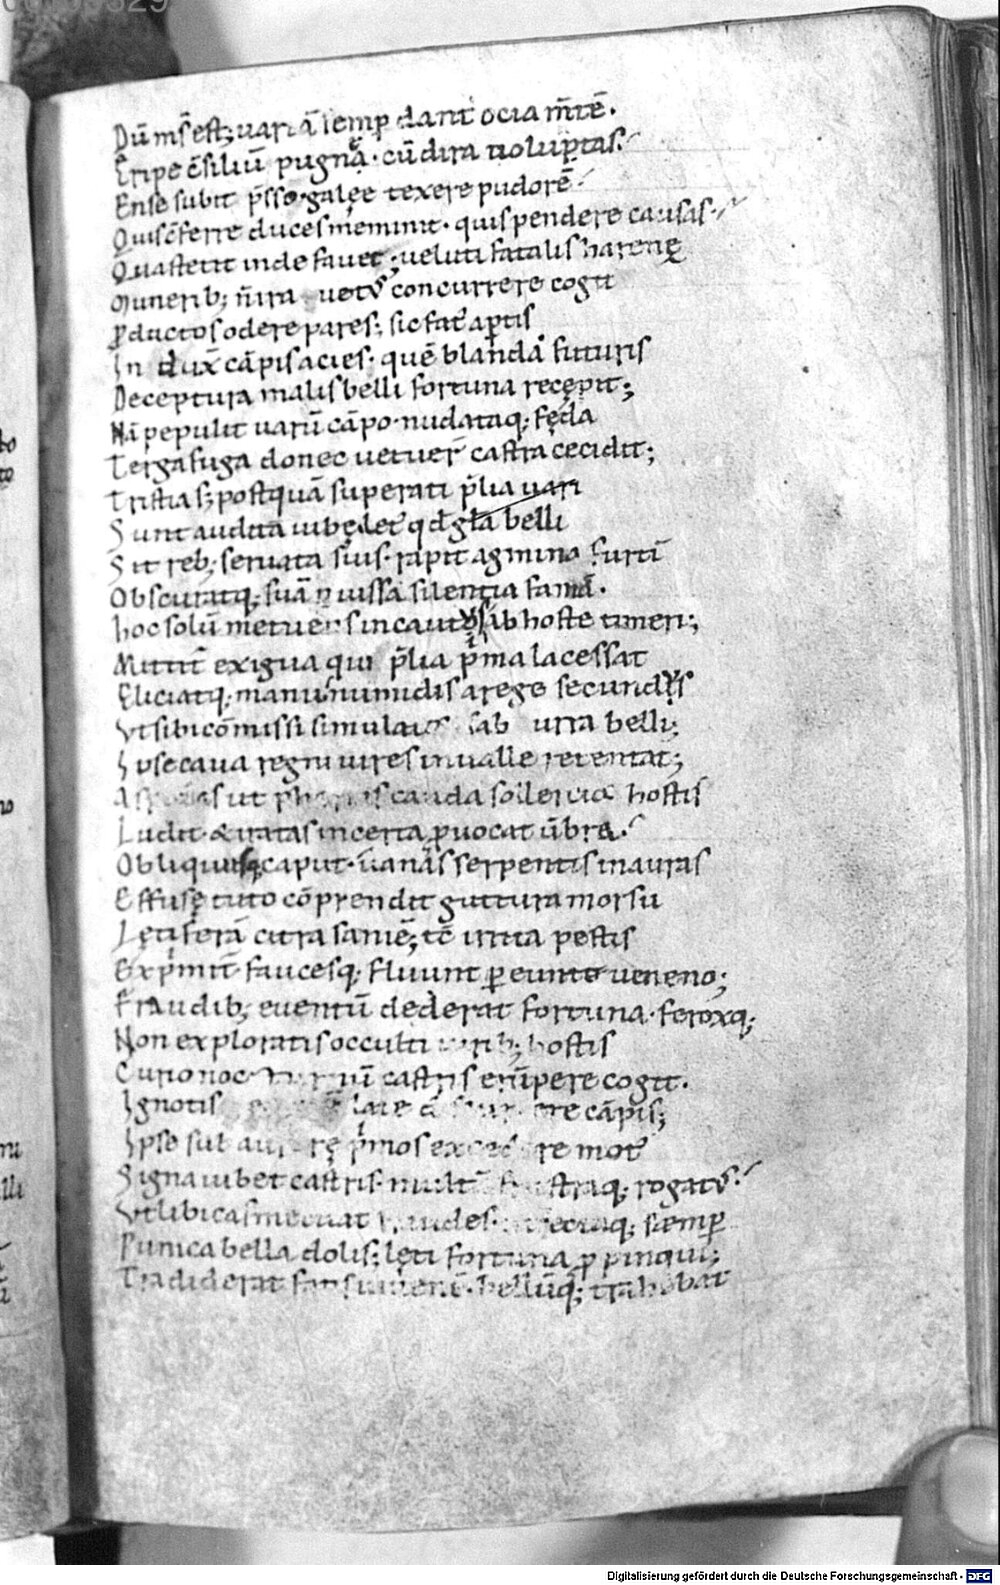 Dū mſ̄ eſt; uariā ſemꝑ dant ocia m̄tē.
Eripe c̄ſiliū pugna. cū dira uoluptas.
Enſe ſubit p̄ſſo. galeę texere pudorē.
Quis c̄ferre duces meminit. quis pendere cauſas.
Qua ſtetit inde fauet; ueluti fatalis harenę
Munerib; n̄ ira uet᷒ concurrere cogit
ꝓductos odere pares; ſic fat᷒ aꝑtis
In dux̄ cāpis acies. quē blanda futuris
Deceptura malis belli fortuna recępit;
Nā pepulit uarū cāpo. nudataq; fęda
Terga fuga donec uetuer̄ caſtra cecidit;
Triſtia ſ; poſtquā ſuperati p̄lia uari
Sunt audita iubę
Sit reb; ſeruata ſuis. rapit agmina furtī
Obſcuratq; ſuā ꝑ iuſſa ſilentia famā.
hoc ſolū metuens incautus ab hoſte timeri;
Mittit᷒ exigua qui p̄lia p̍ma laceſſat
Eliciatq; manu numidis a rege ſecundus
Vt ſibi cōmiſſi ſimulator ſab urra belli;
Ipſe caua regni uires in ualle retentat;
Aſpidas ut phariaſ cauda ſollertior hoſtis
Ludit. & iratas incerta ꝓuocat ūbra.
Obliquuſq; caput. uanas ſerpentis in auras
Effuſę tuto cōprendit guttura morſu
Lętiferā citra ſaniē; tc̄ irrita peſtis
Exp̍mit᷒ fauceſq; fluunt ꝑeunte ueneno;
Fraudib; euentū dederat fortuna. feroxq;
Non exploratis occulti uirib; hoſtis
Curio noc caſtris erūpere cogit.
Ignotis late cāpis;
Ipſe ſub aurorę p̍mos excedere mot᷒
Signa iubet caſtris. multū fruſtraq; rogat᷒.
Vt libicas metuat fraudes. infectaq; ſæmꝑ
Punica bella dolis; lęti fortuna ꝓpinqui;
Tradiderat fatis iuuenē. bellūq; trahebat
Digitalisierung gefördert durch die Deutsche Forschungsgemeinschaft - DFG